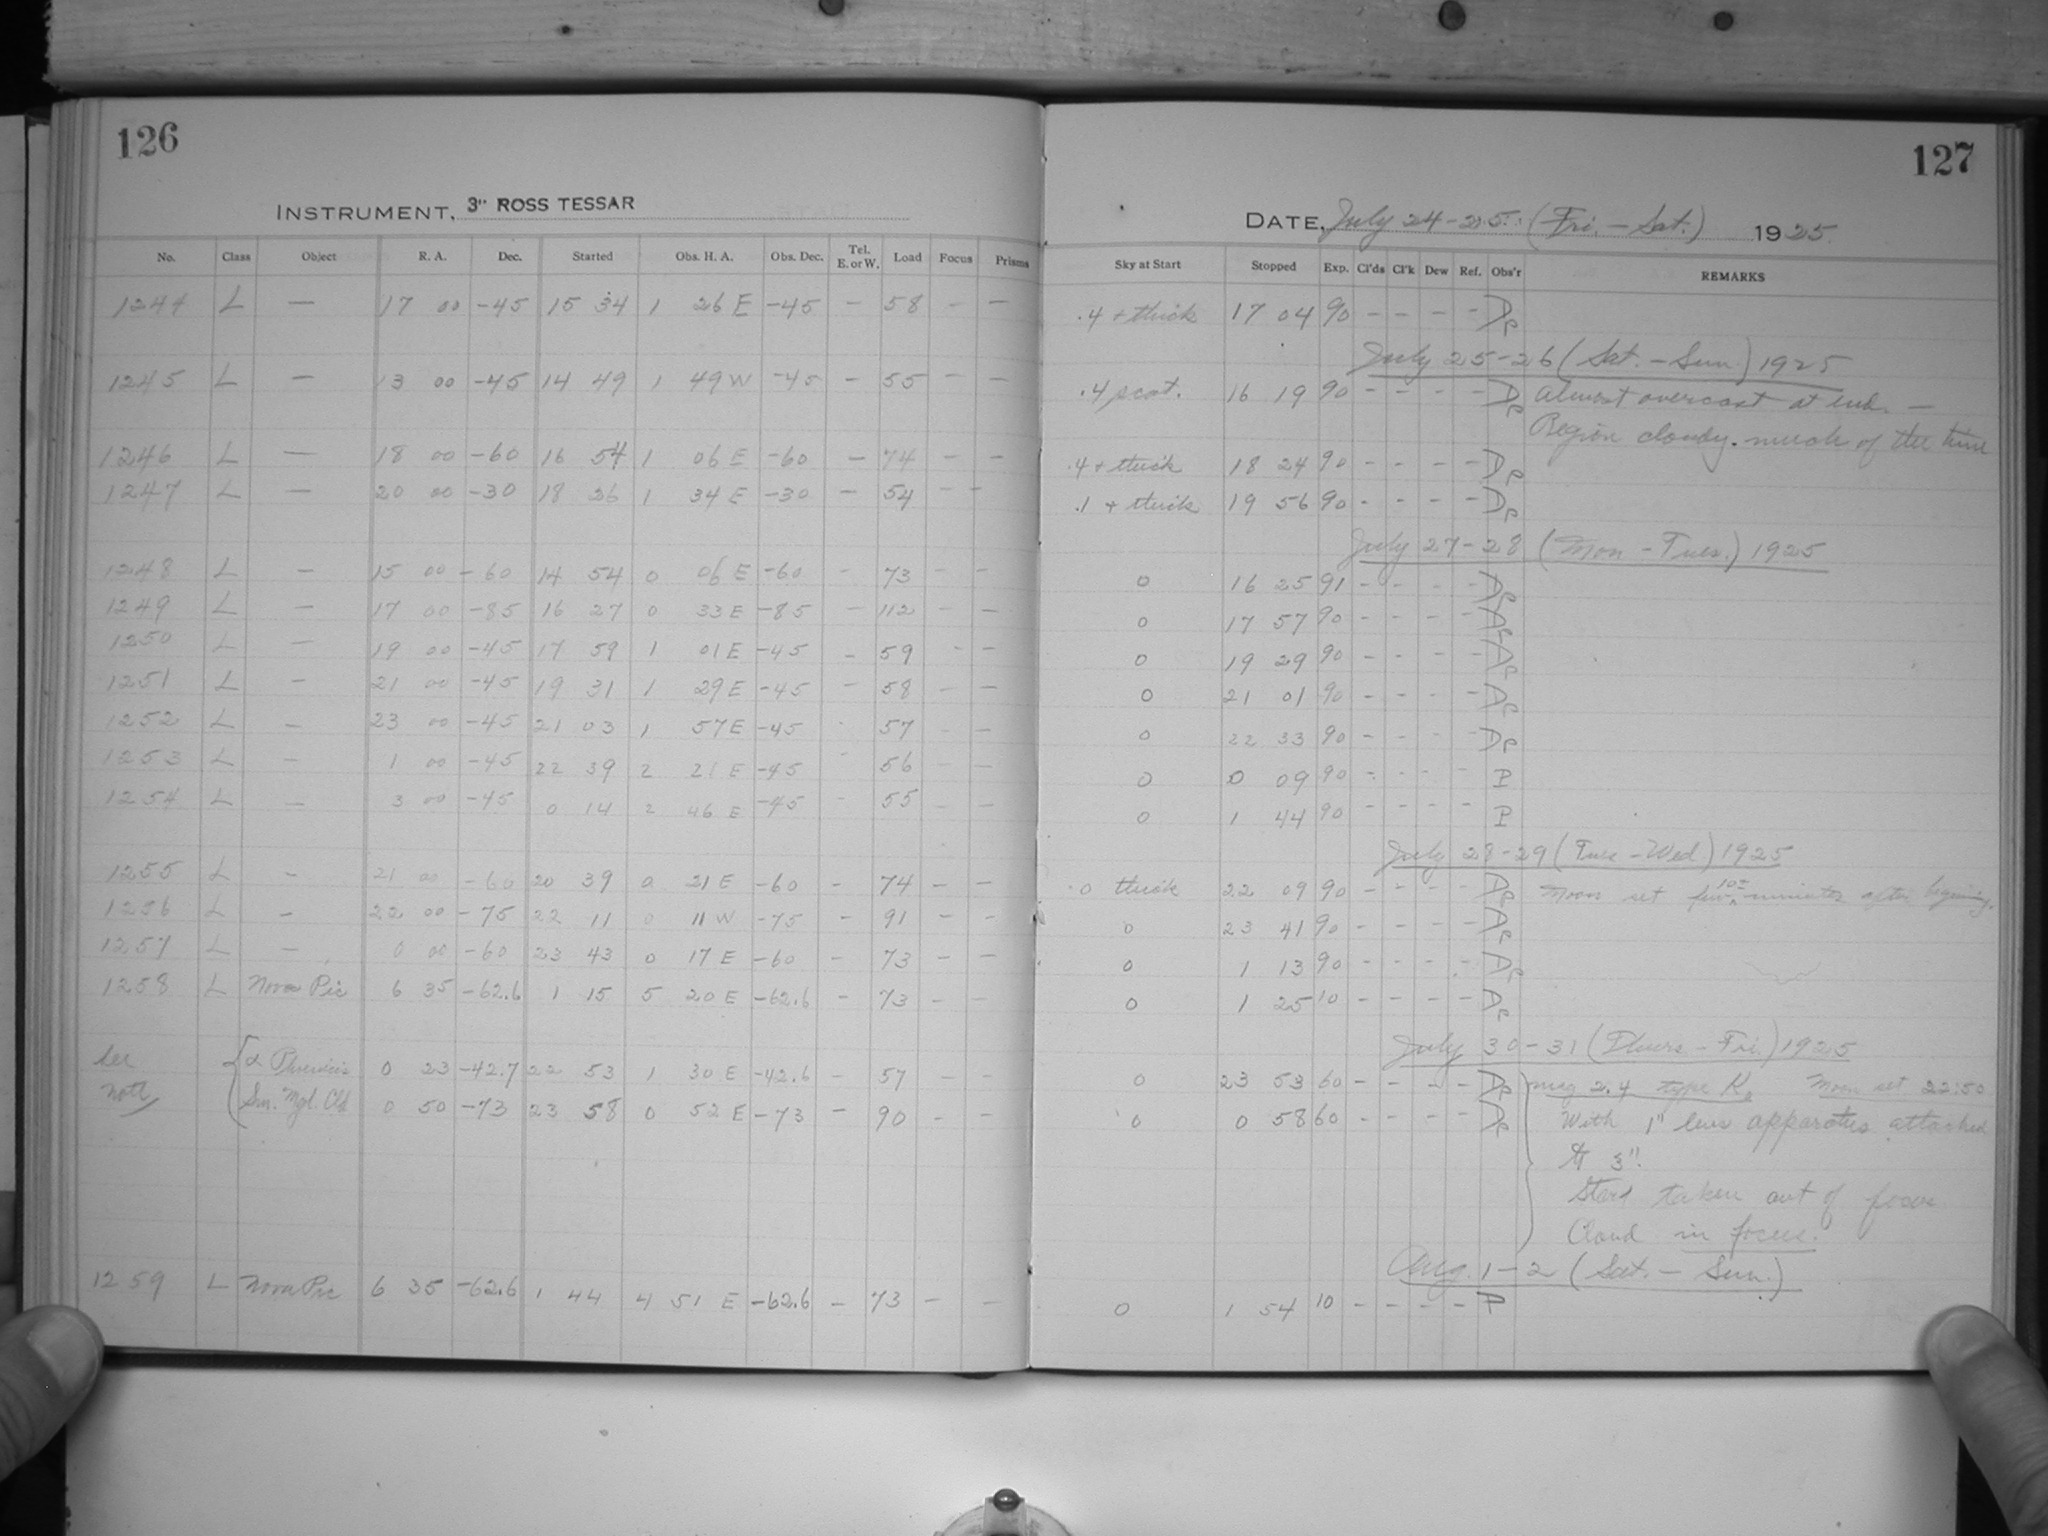 126
INSTRUMENT, 3" ROSS TESSAR
No. Class Object R. A. Dec. Started Obs. H. A. Obs. Dec. Tel. E. or W. Load Focus Prisms
1244 L — 17 00 -45 15 34 1 26 E -45 — 58 — —
1245 L — 13 00 -45 14 49 1 49 W -45 — 55 — —
1246 L — 18 00 -60 16 54 1 06 E -60 — 74 — —
1247 L — 20 00 -30 18 26 1 34 E -30 — 54 — —
1248 L — 15 00 -60 14 54 0 06 E -60 - 73 - -
1249 L — 17 00 -85 16 27 0 33 E -85 — 112 - —
1250 L — 19 00 -45 17 59 1 01 E -45 - 59 - —
1251 L — 21 00 -45 19 31 1 29 E -45 - 58 - —
1252 L — 23 00 -45 21 03 1 57 E -45 - 57 - —
1253 L — 1 00 -45 22 39 2 21 E -45 - 56 - —
1254 L — 3 00 -45 0 14 2 46 E -45 - 55 - —
1255 L - 21 00 -60 20 39 0 21 E -60 - 74 — —
1256 L - 22 00 -75 22 11 0 11 W -75 - 91 - —
1257 L — 0 00 -60 23 43 0 17 E -60 - 73 — —
1258 L Nova Pic 6 35 -62.6 1 15 5 20 E -62.6 - 73 - —
See note α Phoenicis 0 23 -42.7 22 53 1 30 E -42.6 - 57 - —
Sm. Mgl. Cld 0 50 -73 23 58 0 52 E -73 — 90 - —
1259 L Nova Pic 6 35 -62.6 1 44 4 51 E -62.6 — 73 — —
127
DATE, July 24-25 (Fri. — Sat.) 1925
Sky at Start Stopped Exp. Cl'ds Cl'k Dew Ref. Obs'r REMARKS
.4 + thick 17 04 90 - - - -
July 25-26 (Sat. - Sun.) 1925
.4 scat. 16 19 90 - - - - almost overcast at end. —
Region cloudy. much of the time
.4 + thick 18 24 90 - - - -
.1 + thick 19 56 90 - - - -
July 27-28 (Mon - Tues.) 1925
0 16 25 91 - - - -
0 17 57 90 - - - -
0 19 29 90 - - - -
0 21 01 90 - - - -
0 22 33 90 - - - -
0 0 09 90 - - - - P
0 1 44 90 - - - - P
July 28-29 (Tues - Wed) 1925
0 thick 22 09 90 - - - - Moon set few 10± minutes after beginning.
0 23 41 90 - - - -
0 1 13 90 - - - -
0 1 25 10 - - - -
July 30-31 (Thurs - Fri.) 1925
0 23 53 60 - - - - mag 2.4 type K0 Moon set 22:50
0 0 58 60 - - - - With 1" lens apparatus attached
to 3".
Stars taken out of focus
Cloud in focus.
Aug. 1-2 (Sat. - Sun.)
0 1 54 10 - - - - P